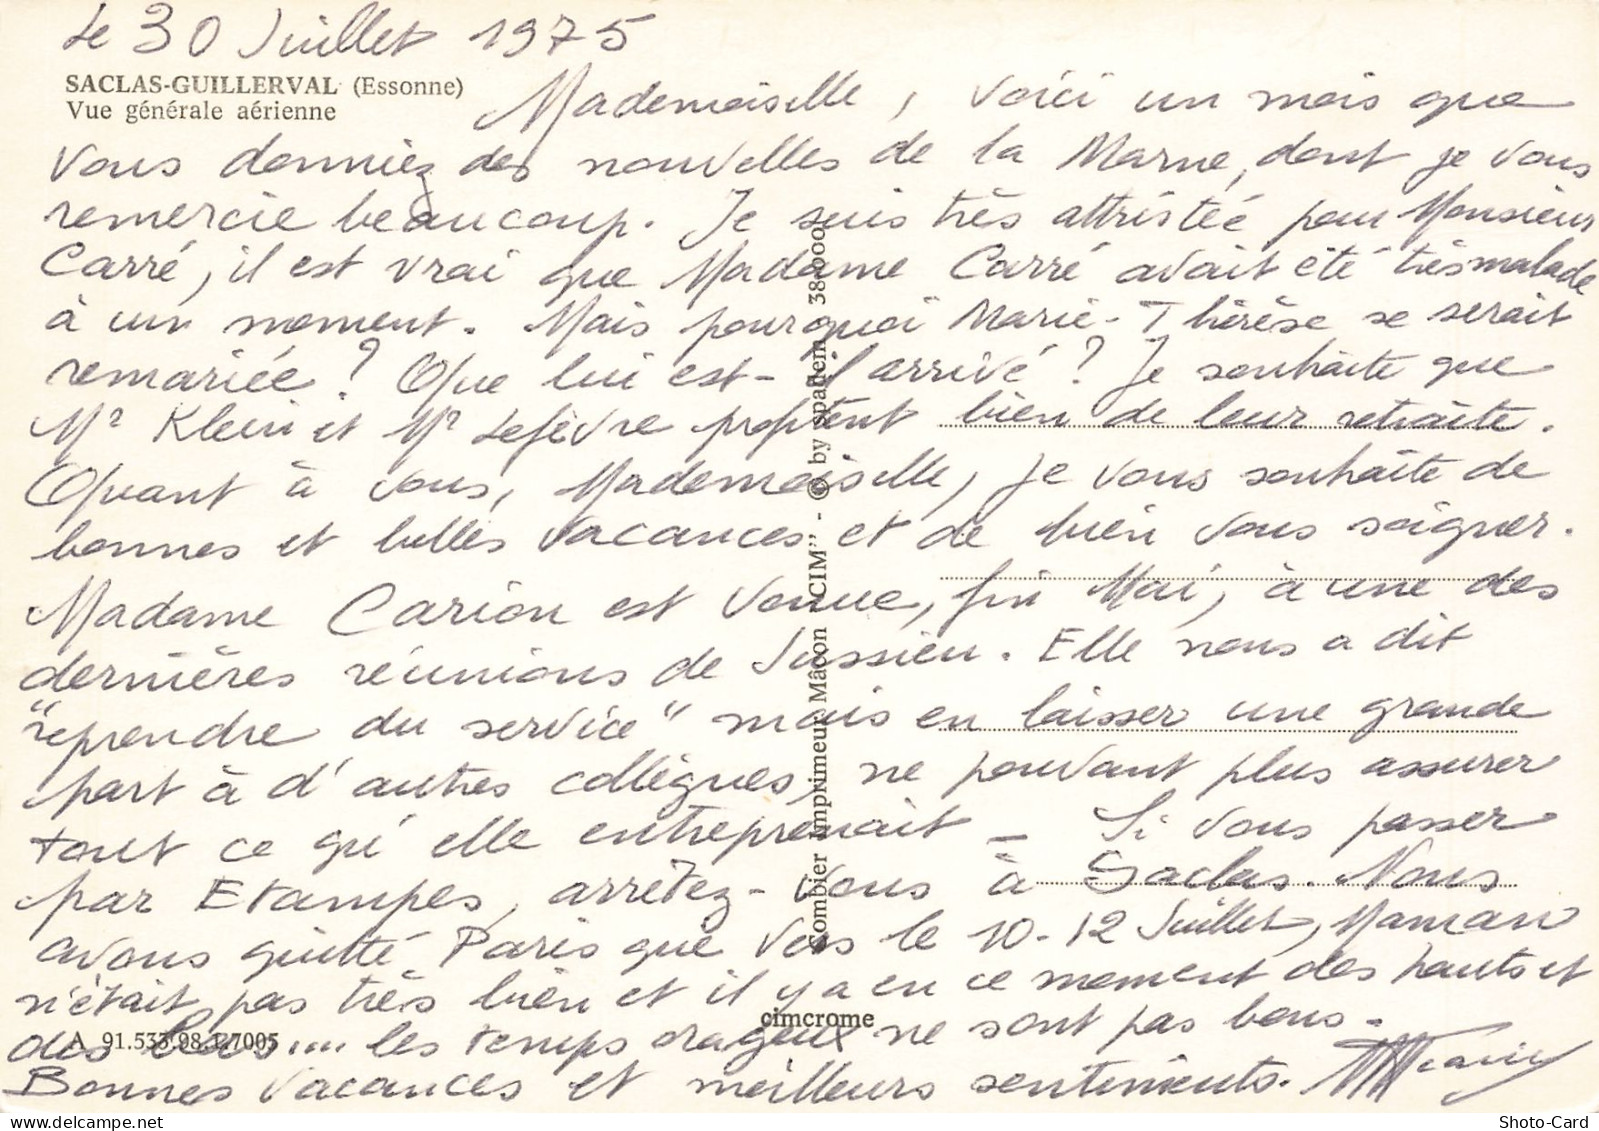 Le 30 Juillet 1975
SACLAS-GUILLERVAL (Essonne)
Vue générale aérienne
Mademoiselle, voici un mois que
vous donniez des nouvelles de la Marne, dont je vous
remercie beaucoup. Je suis très attristée pour Monsieur
Carré, il est vrai que Madame Carré avait été très malade
à un moment. Mais pourquoi Marie-Thérèse se serait
remariée? Que lui est-il arrivé? Je souhaite que
Mr Klein et Mr Lefèvre profitent bien de leur retraite.
Quant à vous, Mademoiselle, je vous souhaite de
bonnes et belles vacances et de bien vous soigner.
Madame Carion est venue, fin Mai, à une des
dernières réunions de Jussieu. Elle nous a dit
"reprendre du service" mais en laisser une grande
part à d'autres collègues, ne pouvant plus assurer
tout ce qu'elle entreprenait _ Si vous passer
par Etampes, arrêtez-vous à Saclas. Nous
avons quitté Paris que vers le 10-12 Juillet, Maman
n'était pas très bien et il y a en ce moment des hauts et
des bas.... les temps orageux ne sont pas bons.
Bonnes vacances et meilleurs sentiments.
Combier Imprimeur Mâcon "CIM" - © by spadem 38.000
cimcrome
A 91.533.98.1.7005
Shoto-Card